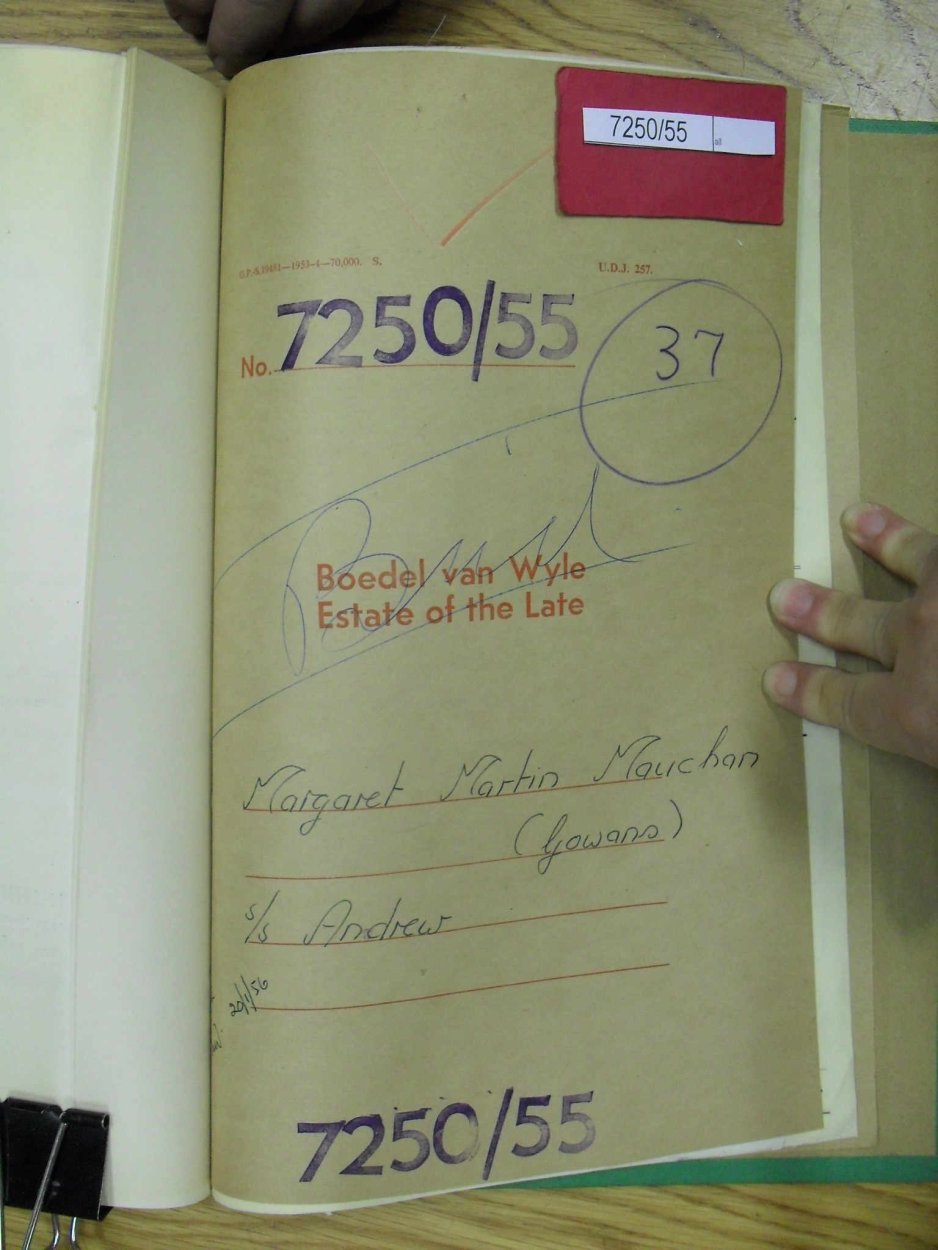 7250/55
U.D.J. 257.
No. 7250/55
37
Boedel van Wyle
Estate of the Late
Margaret Martin Mauchan
(Gowans)
s/s Andrew
20/1/56
7250/55